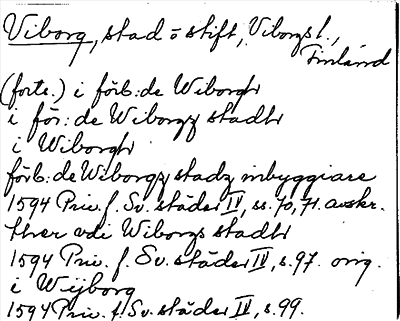 Viborg, stad o stift, Viborgs l.,
Finland
(forts.) i förb: de Wiborgh
i för: de Wiborgz stadh
i Wiborgh
förb: de Wiborgz stadz inbyggiare
1594 Priv. f. Sv. städer IV, ss. 70, 71. avskr.
ther vdi Wiborgs stadh
1594 Priv. f. Sv. städer IV, s. 97. orig.
i Wijborg
1594 Priv. f. Sv. städer IV, s. 99.